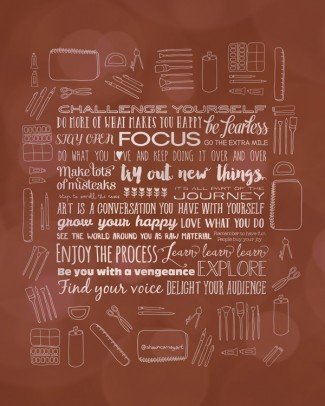 CHALLENGE YOURSELF
DO MORE OF WHAT MAKES YOU HAPPY be fearless
STAY OPEN FOCUS GO THE EXTRA MILE
DO WHAT YOU L♥VE AND KEEP DOING IT OVER AND OVER
Make lots of misteaks try out new things.
Stop to smell the roses IT'S ALL PART OF THE JOURNEY
ART IS A CONVERSATION YOU HAVE WITH YOURSELF
grow your happy LOVE WHAT YOU DO
SEE THE WORLD AROUND YOU AS RAW MATERIAL Remember to have fun.
People buy your joy
ENJOY THE PROCESS Learn learn learn
Be you with a vengeance EXPLORE
Find your voice DELIGHT YOUR AUDIENCE